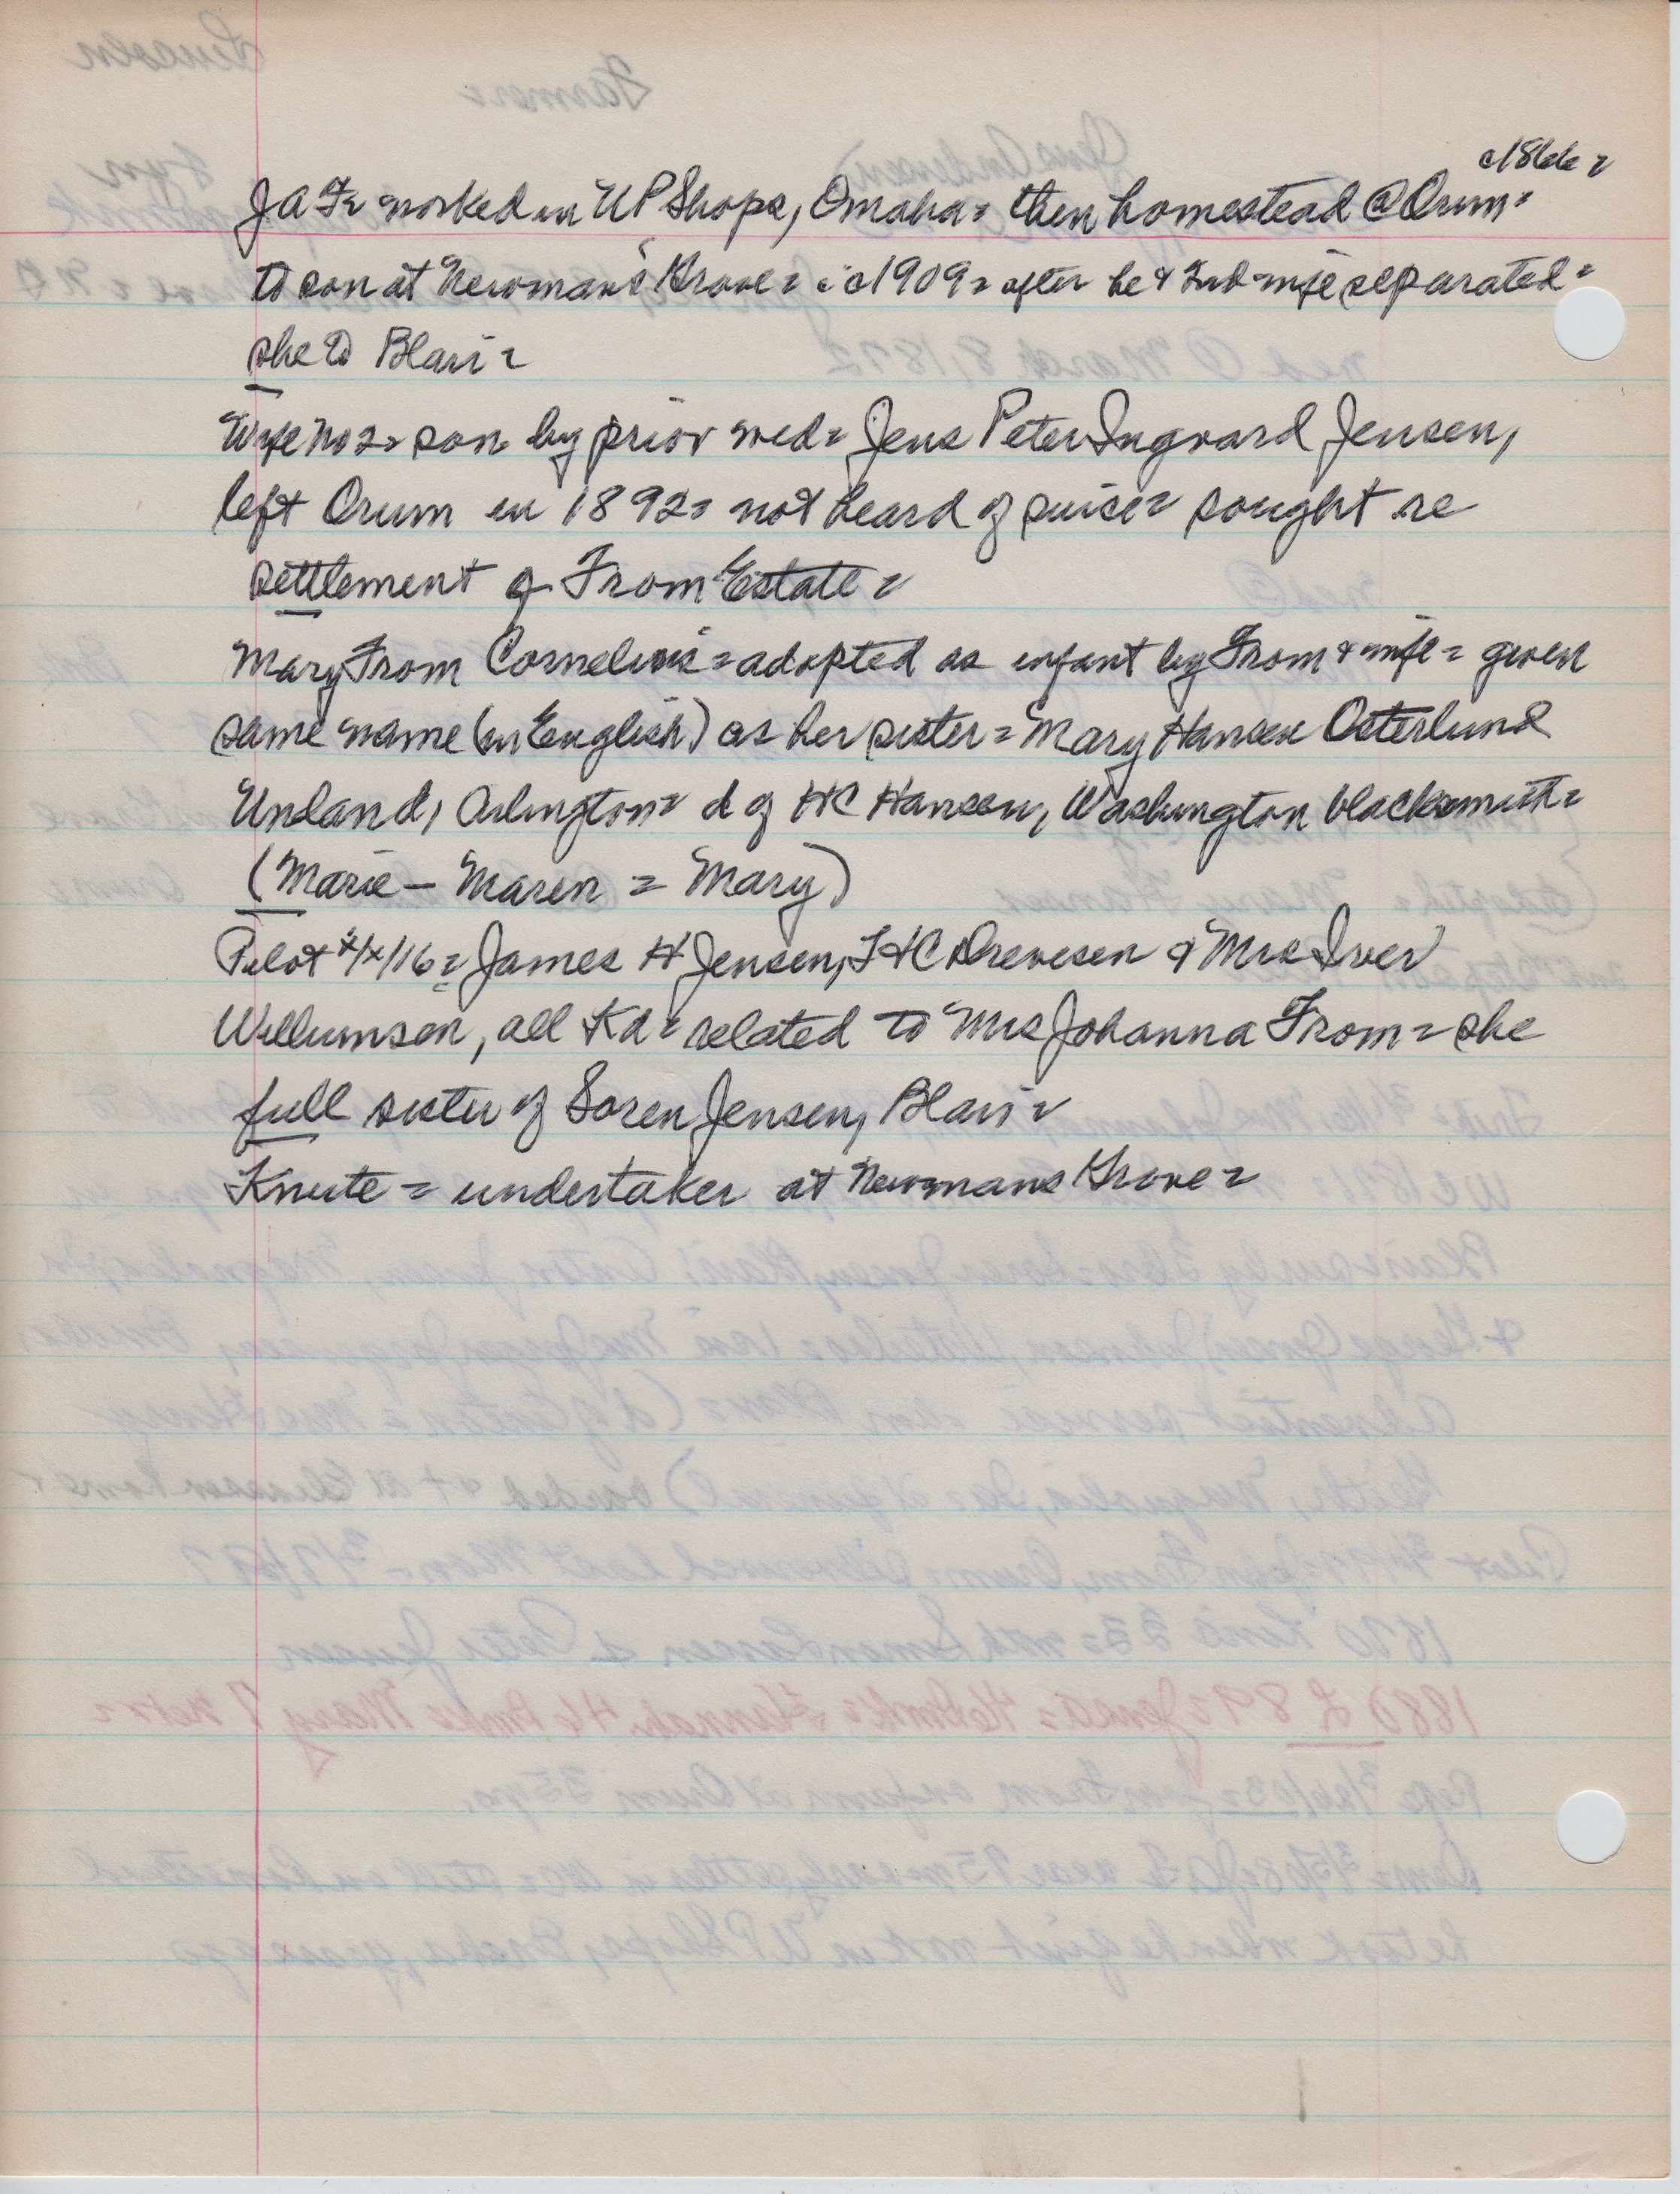 c1866=
JAF= worked in UP Shops, Omaha= then homestead @ Orum=
to son at Newmans Grove= c1909= after he & 2nd wife separated=
she to Blair=
Wife No 2= son by prior wed= Jens Peter Ingvard Jensen,
left Orum in 1892= not heard of since= sought re
settlement of From Estate=
Mary From Cornelius= adopted as infant by From & wife= given
same name (in English) as her sister= Mary Hansen Osterlund
Unland, Arlington= d of HC Hansen, Washington blacksmith=
(Marie - Maren = Mary)
Pilot /16= James H Jensen, HC Drevesen & Mrs Iver
Willumsen, all Kd= related to Mrs Johanna From= she
full sister of Soren Jensen, Blair=
Knute= undertaker at Newmans Grove=